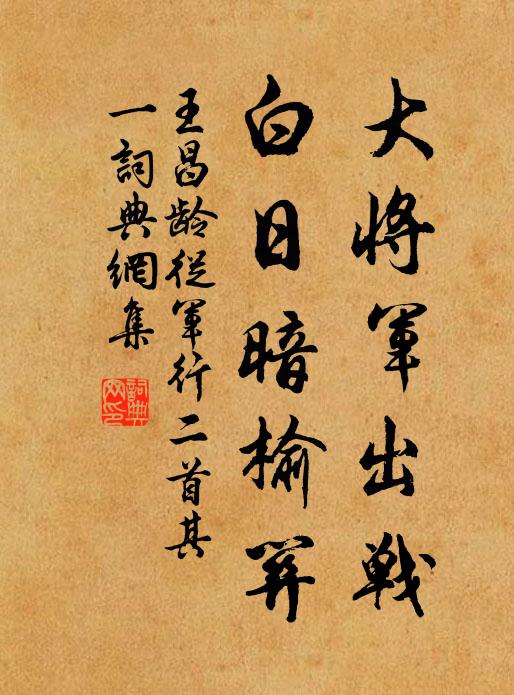 大將軍出戰
白日暗榆關
王昌齡從軍行二首其
一詞典網集
詞典網印